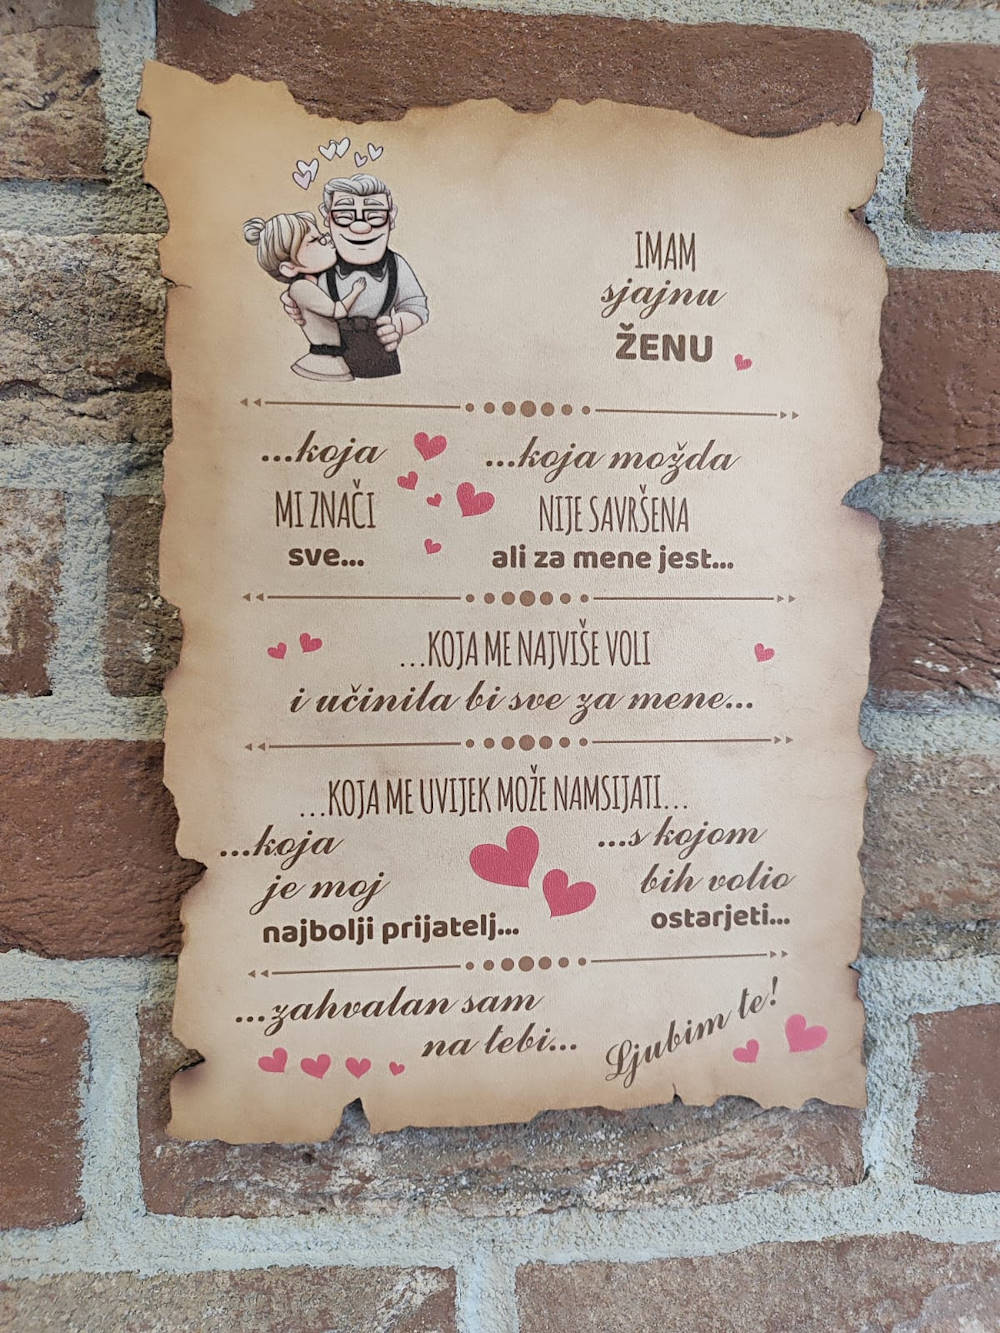 IMAM
sjajnu
ŽENU
...koja
MI ZNAČI
sve...
...koja možda
NIJE SAVRŠENA
ali za mene jest...
...KOJA ME NAJVIŠE VOLI
i učinila bi sve za mene...
...KOJA ME UVIJEK MOŽE NAMSIJATI...
...koja
je moj
najbolji prijatelj...
...s kojom
bih volio
ostarjeti...
...zahvalan sam
na tebi...
Ljubim te!